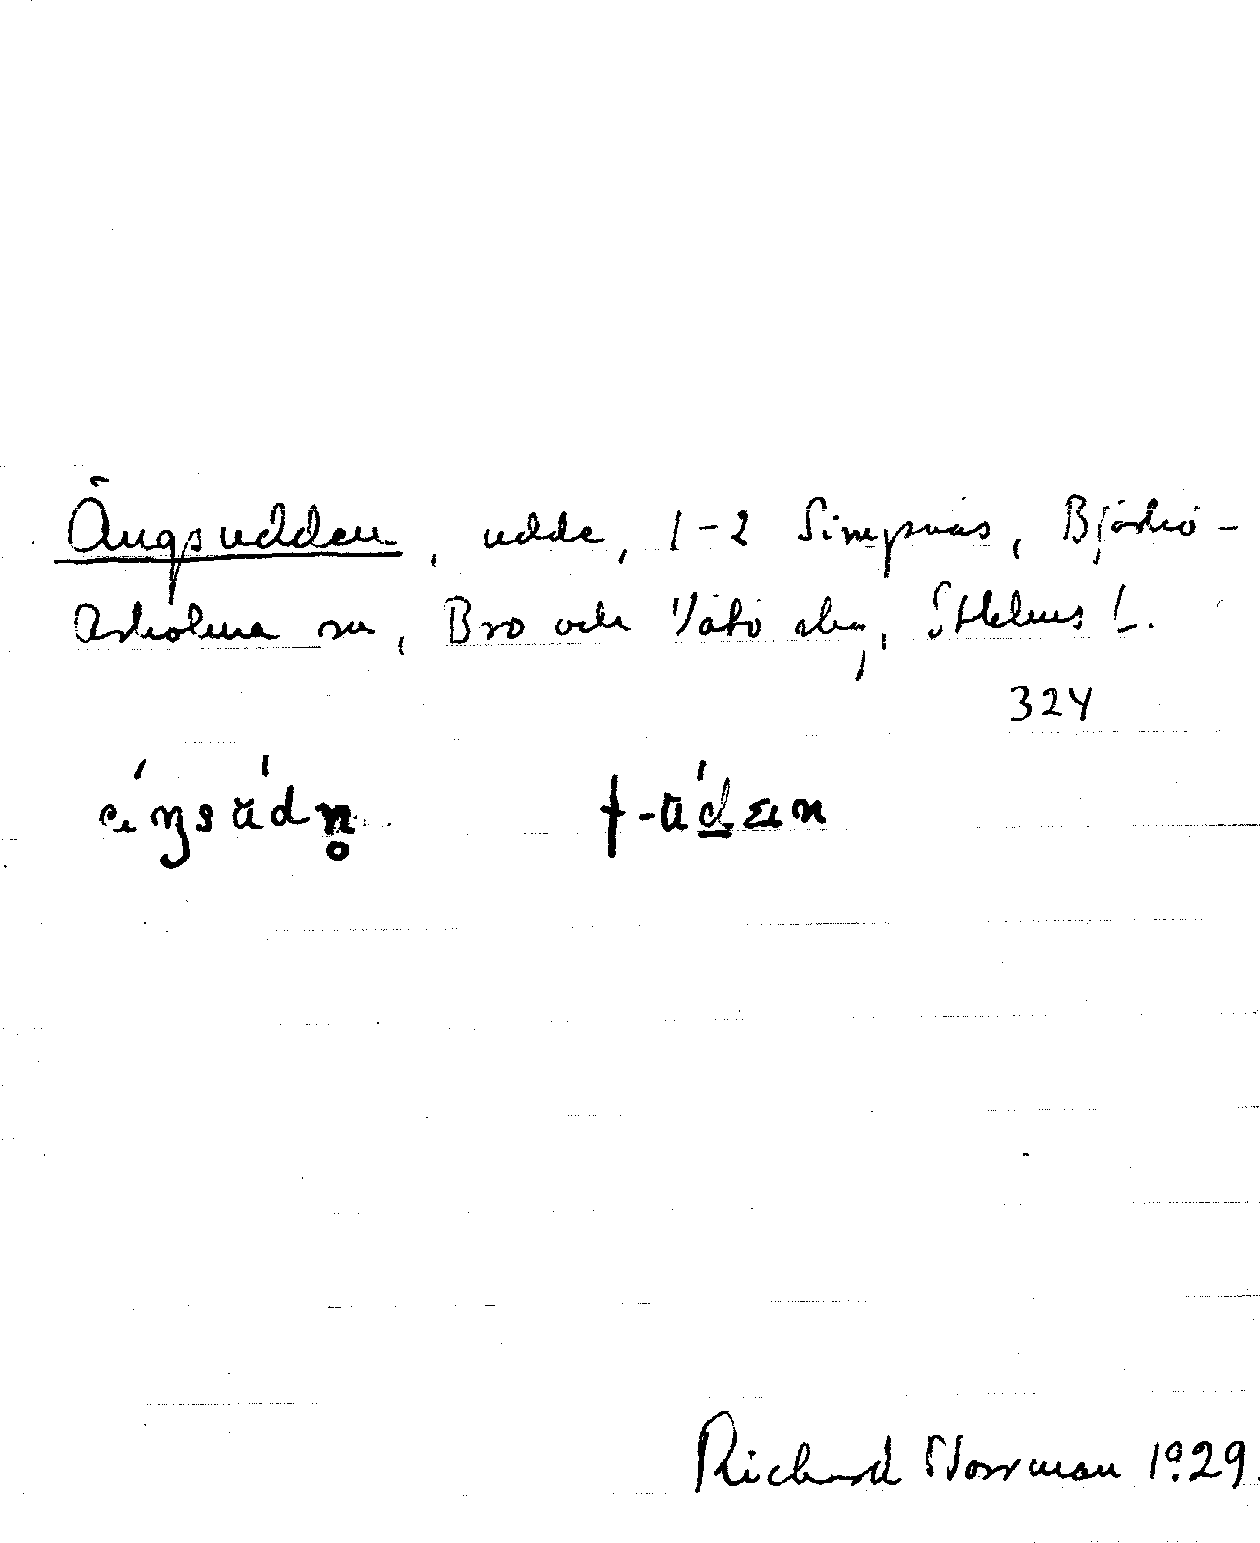 Ängsudden, udde, 1-2 Simpnäs, Björkö-
Arholma sn, Bro och Vätö skg, Sthlms L.
324
Richard Norrman 1929.